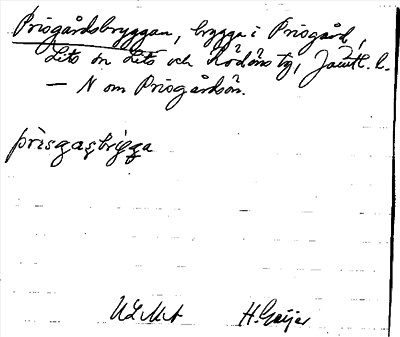 Prisgårdsbryggan, brygga i Prisgård,
Lits sn Lits och Rödöns tg, Jämtl. l.
— N om Prisgårdsön.
prisgaşbrigga
H. Geijer